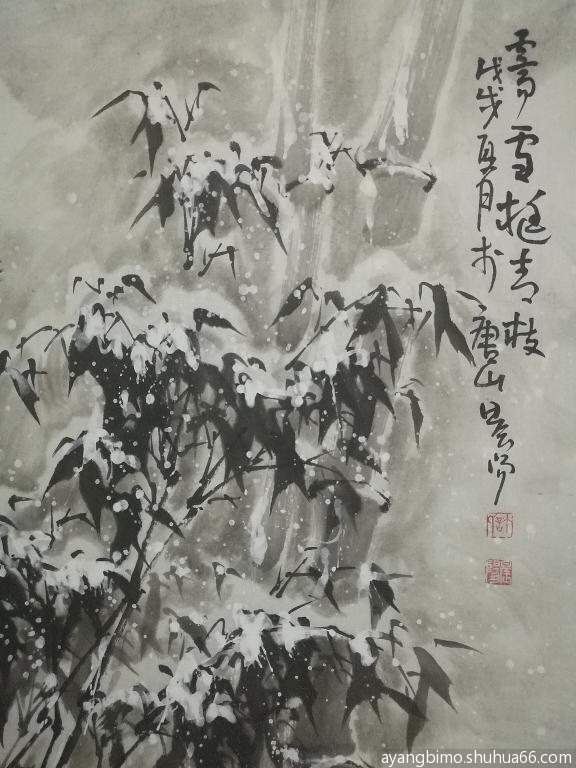 霽雪挺青枝
戊戌夏月於唐山
ayangbimo.shuhua66.com